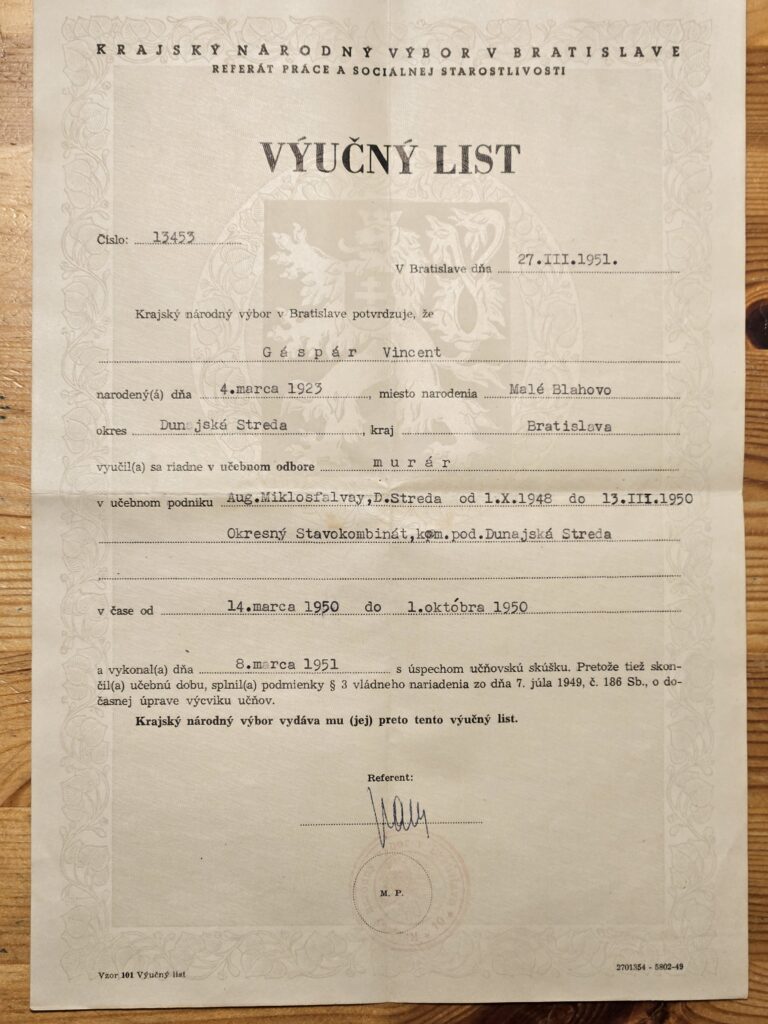 KRAJSKÝ NÁRODNÝ VÝBOR V BRATISLAVE
REFERÁT PRÁCE A SOCIÁLNEJ STAROSTLIVOSTI
VÝUČNÝ LIST
Číslo: 13453
V Bratislave dňa 27.III.1951.
Krajský národný výbor v Bratislave potvrdzuje, že
Gáspár Vincent
narodený(á) dňa 4.marca 1923, miesto narodenia Malé Blahovo
okres Dunajská Streda, kraj Bratislava
vyučil(a) sa riadne v učebnom odbore murár
v učebnom podniku Aug.Miklosfalvay,D.Streda od 1.X.1948 do 13.III.1950
Okresný Stavokombinát,kom.pod.Dunajská Streda
v čase od 14.marca 1950 do 1.októbra 1950
a vykonal(a) dňa 8.marca 1951 s úspechom učňovskú skúšku. Pretože tiež skon-
čil(a) učebnú dobu, splnil(a) podmienky § 3 vládneho nariadenia zo dňa 7. júla 1949, č. 186 Sb., o do-
časnej úprave výcviku učňov.
Krajský národný výbor vydáva mu (jej) preto tento výučný list.
Referent:
M. P.
Vzor 101 Výučný list
2701354 - 5802-49